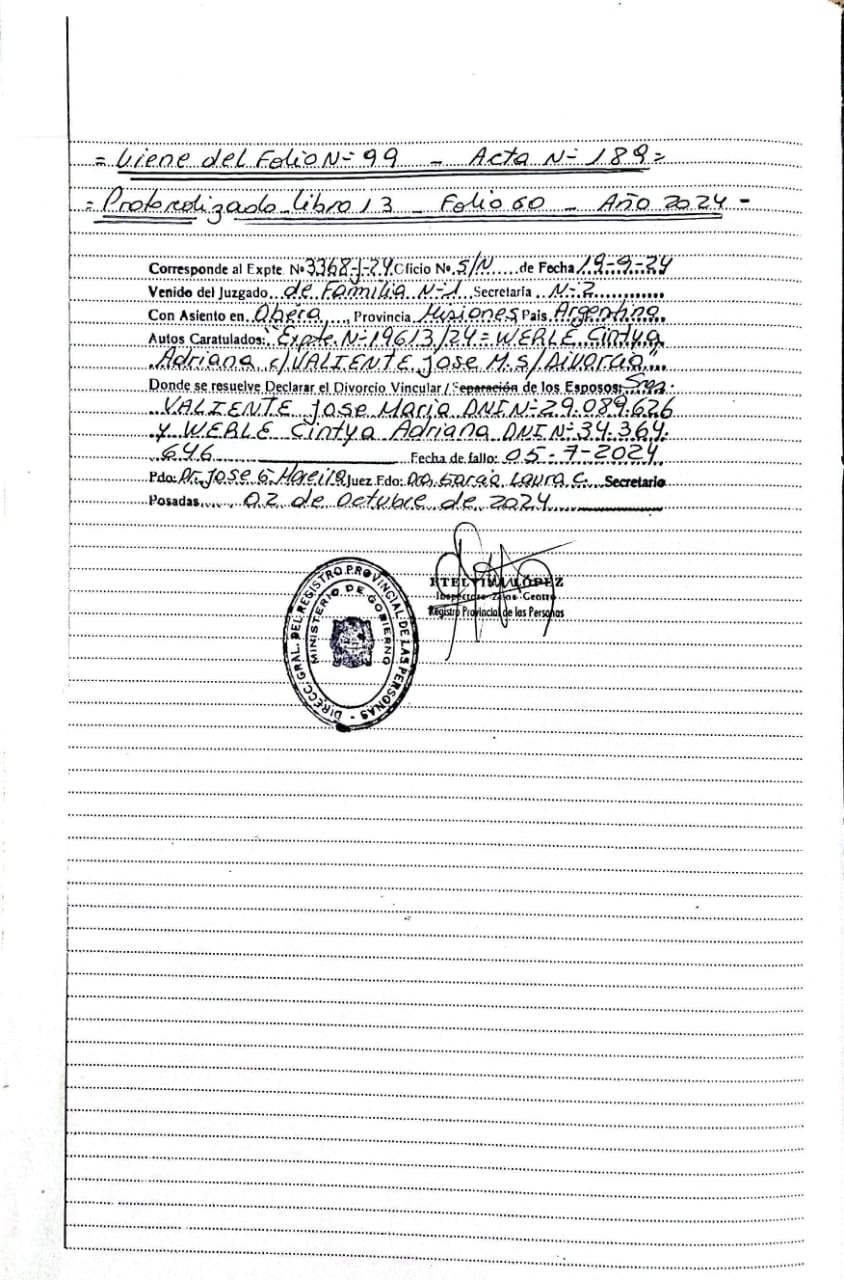 = Viene del Folio Nº 99 - Acta Nº 189 =
= Protocolizado - libro 13 - Folio 60 - Año 2024 -
Corresponde al Expte. Nº 3368-J-24. Oficio Nº. S/N..... de Fecha 19-9-24
Venido del Juzgado. de Familia Nº 1 Secretaría .. Nº 2............
Con Asiento en. Oberá...., Provincia. Misiones País. Argentina.
Autos Caratulados: "Expte. Nº 19613/24 = WERLE Cintya
Adriana c/ VALIENTE Jose M. S/ Divorcio"
Donde se resuelve Declarar el Divorcio Vincular / Separación de los Esposos:
VALIENTE Jose Maria DNI Nº 29.089.626
y WERLE Cintya Adriana DNI Nº 34.364.
646 Fecha de fallo: 05-7-2024
Pdo: Dr. Jose G. Moreira Juez Fdo: Dra. Garcia Laura C... Secretario
Posadas...... 02 de Octubre de 2024
ETELVINA LÓPEZ
Inspectora Zona Centro
Registro Provincial de las Personas
DIRECC. GRAL. DEL REGISTRO PROVINCIAL DE LAS PERSONAS -
MINISTERIO DE GOBIERNO